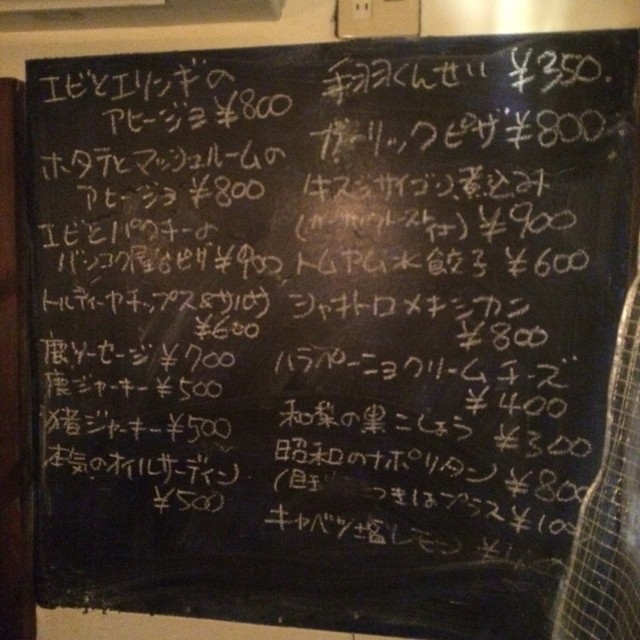 エビとエリンギの
アヒージョ ¥800
ホタテとマッシュルームの
アヒージョ ¥800
エビとパクチーの
バンコク屋台ピザ ¥900
トルティーヤチップス&サルサ
¥600
鹿ソーセージ ¥700
鹿ジャーキー ¥500
猪ジャーキー ¥500
本気のオイルサーディン
¥500
手羽くんせい ¥350.
ガーリックピザ ¥800
牛スジサイゴン煮込み
¥900
トムヤム水餃子 ¥600
シャキトロメキシカン
¥800
ハラペーニョクリームチーズ
¥400
和梨の黒こしょう ¥300
昭和のナポリタン ¥800
つきはプラス ¥100
キャベツ塩レモン